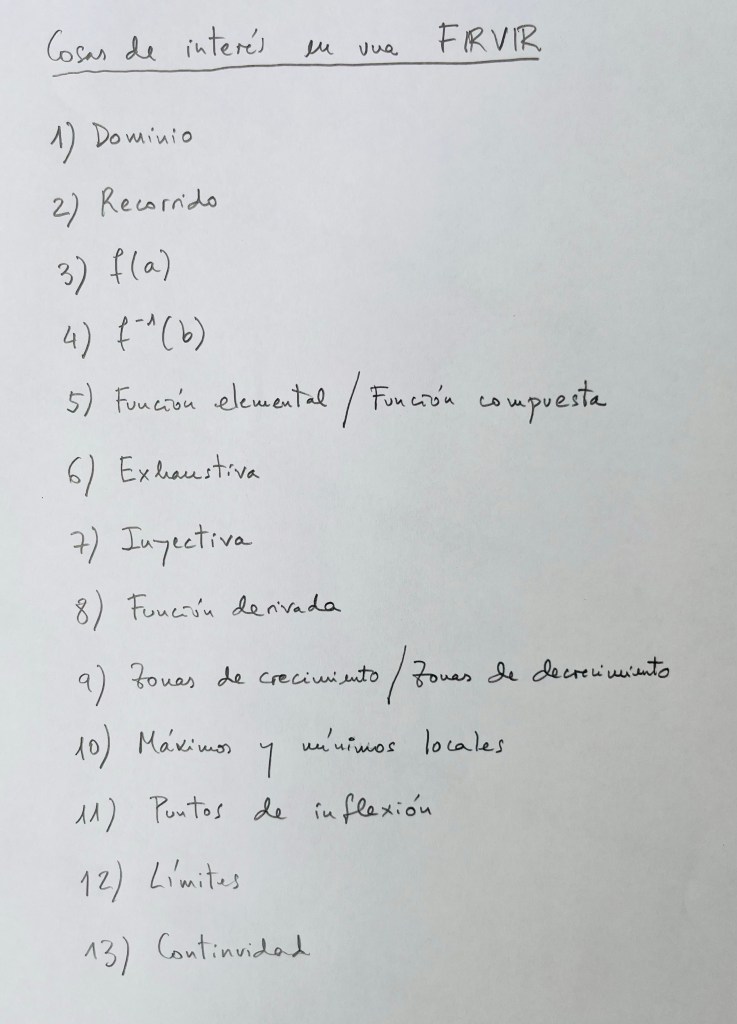 Cosas de interés en una FIRVIR
1) Dominio
2) Recorrido
3) f(a)
4) f⁻¹(b)
5) Función elemental / Función compuesta
6) Exhaustiva
7) Inyectiva
8) Función derivada
9) Zonas de crecimiento / Zonas de decrecimiento
10) Máximos y mínimos locales
11) Puntos de inflexión
12) Límites
13) Continuidad